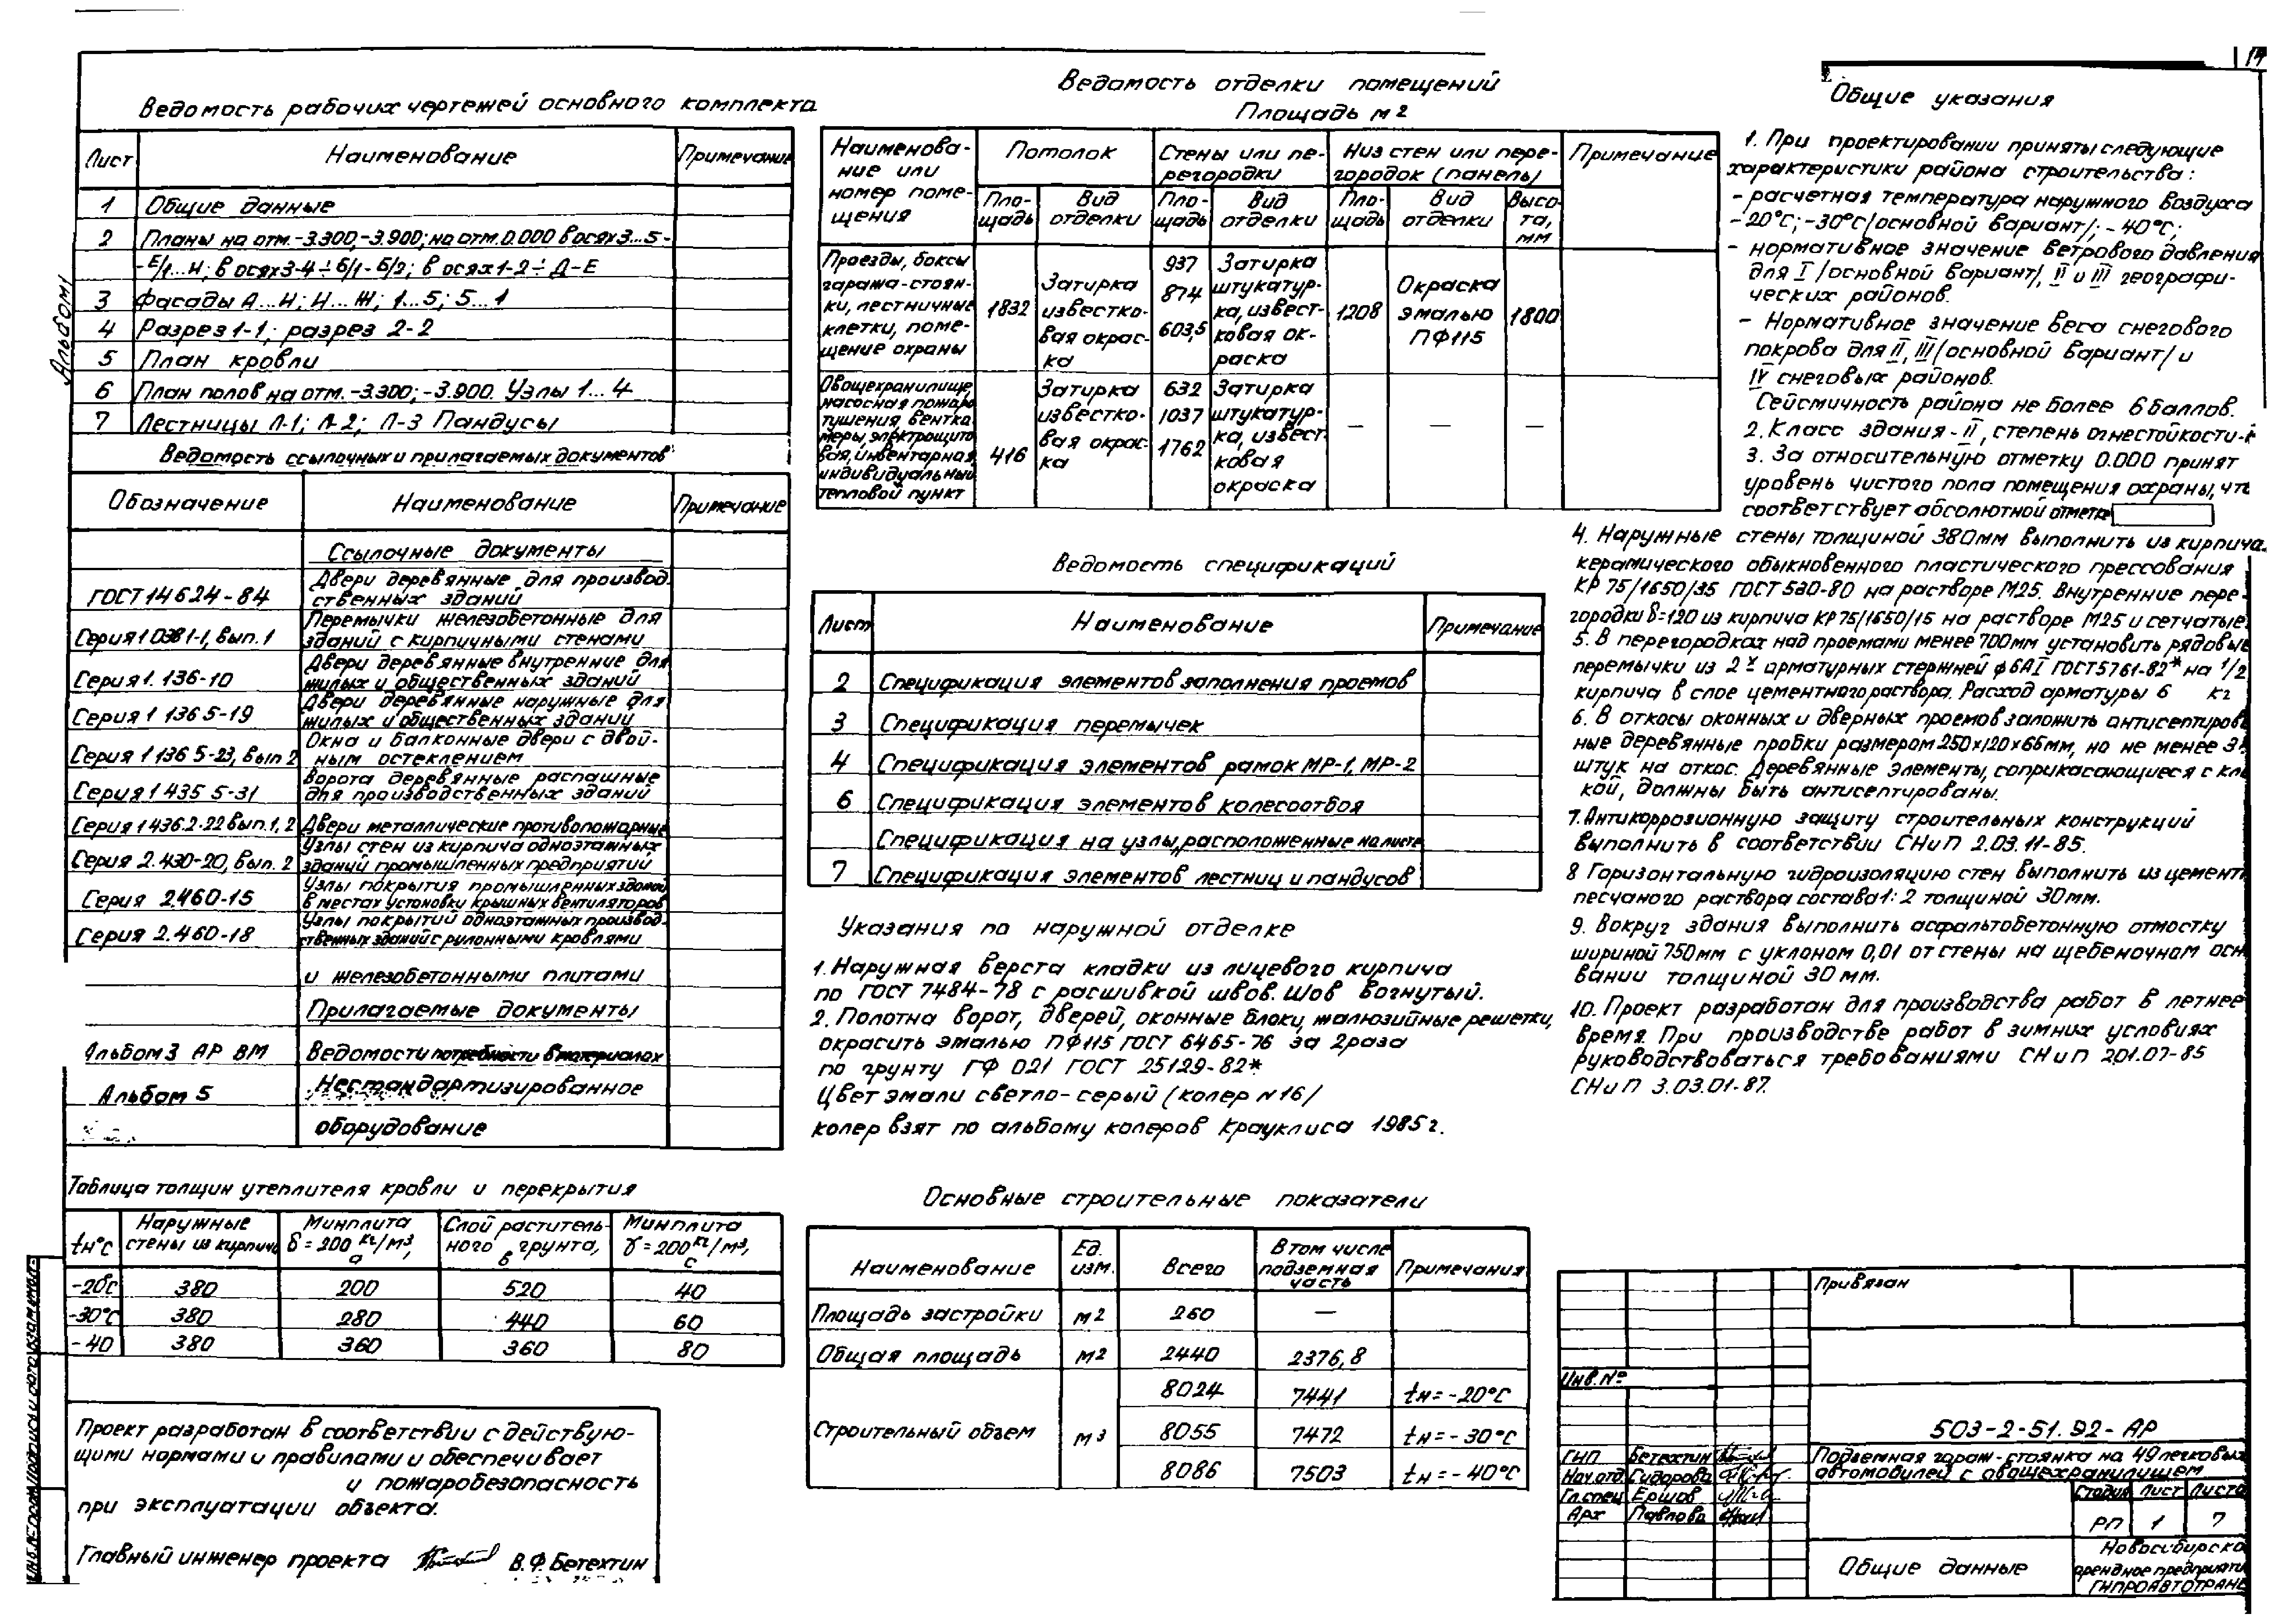 Альбом 1
Ведомость рабочих чертежей основного комплекта
Лист Наименование Примечание
1 Общие данные
2 Планы на отм.-3.300;-3.900; на отм. 0.000 в осях 3...5-
-Е/1...И; в осях 3-4÷Б/1-Б/2; в осях 1-2÷Д-Е
3 Фасады А...И; И...Ж; 1...5; 5...1
4 Разрез 1-1; разрез 2-2
5 План кровли
6 План полов на отм.-3.300;-3.900. Узлы 1...4
7 Лестницы Л-1; Л-2; Л-3 Пандусы
Ведомость ссылочных и прилагаемых документов
Обозначение Наименование Примечание
Ссылочные документы
ГОСТ 14624-84 Двери деревянные для производ
ственных зданий
Серия 1 038.1-1, вып.1 Перемычки железобетонные для
зданий с кирпичными стенами
Серия 1. 136-10 Двери деревянные внутренние для
жилых и общественных зданий
Серия 1 136 5-19 Двери деревянные наружные для
жилых и общественных зданий
Серия 1 136 5-23, вып 2 Окна и балконные двери с двой-
ным остеклением
Серия 1 435 5-31 Ворота деревянные распашные
для производственных зданий
Серия 1 436.2-22 вып.1, 2 Двери металлические противопожарные
Серия 2.430-20, вып. 2 Узлы стен из кирпича одноэтажных
зданий промышленных предприятий
Серия 2.460-15 Узлы покрытия промышленных зданий
в местах установки крышных вентиляторов
Серия 2.460-18 Узлы покрытий одноэтажных производ-
ственных зданий с рулонными кровлями
и железобетонными плитами
Прилагаемые документы
Альбом 3 АР ВМ Ведомости потребности в материалах
Альбом 5 Нестандартизированное
оборудование
Таблица толщин утеплителя кровли и перекрытия
tн°С Наружные стены из кирпича Минплита δ=200 кг/м3, а Слой раститель-ного грунта, в Минплита γ=200 кг/м3, с
-20°С 380 200 520 40
-30°С 380 280 440 60
-40 380 360 360 80
Проект разработан в соответствии с действую-
щими нормами и правилами и обеспечивает
и пожаробезопасность
при эксплуатации объекта.
Главный инженер проекта В.Ф. Бетехтин
Ведомость отделки помещений
Площадь м2
Наименова-ние или номер поме-щения Потолок Стены или пе-регородки Низ стен или пере-городок (панель) Примечание
Пло-щадь Вид отделки Пло-щадь Вид отделки Пло-щадь Вид отделки Высо-та, мм
Проезды, боксы
гаража-стоян-
ки, лестничные
клетки, поме-
щение охраны
1832
Затирка
известко-
вая окрас-
ка
937
874
6035
Затирка
штукатур-
ка, извест-
ковая ок-
раска
1208
Окраска
эмалью
ПФ115
1800
Овощехранилище,
насосная пожаро
тушения, вентка
меры, электрощито
вая, инвентарная,
индивидуальный
тепловой пункт
416
Затирка
известко-
вая окрас-
ка
632
1037
1762
Затирка
штукатур-
ка, извест
ковая
окраска
— — —
Ведомость спецификаций
Лист Наименование Примечание
2 Спецификация элементов заполнения проемов
3 Спецификация перемычек
4 Спецификация элементов рамок МР-1, МР-2
6 Спецификация элементов колесоотбоя
Спецификация на узлы, расположенные на листе
7 Спецификация элементов лестниц и пандусов
Указания по наружной отделке
1. Наружная верста кладки из лицевого кирпича
по ГОСТ 7484-78 с расшивкой швов. Шов вогнутый.
2. Полотна ворот, дверей, оконные блоки, жалюзийные решетки,
окрасить эмалью ПФ115 ГОСТ 6465-76 за 2 раза
по грунту ГФ 021 ГОСТ 25129-82*
Цвет эмали светло-серый (колер N16/
колер взят по альбому колеров Крауклиса 1985г.
Основные строительные показатели
Наименование Ед. изм. Всего В том числе подземная часть Примечания
Площадь застройки м2 260 —
Общая площадь м2 2440 2376,8
Строительный объем м3
8024 7441 tн=-20°С
8055 7472 tн=-30°С
8086 7503 tн=-40°С
Общие указания
1. При проектировании приняты следующие
характеристики района строительства:
- расчетная температура наружного воздуха
-20°С;-30°С/основной вариант/;-40°С;
- нормативное значение ветрового давления
для I /основной вариант/, II и III географи-
ческих районов.
- Нормативное значение веса снегового
покрова для II, III/основной вариант/ и
IV снеговых районов.
Сейсмичность района не более 6 баллов.
2. Класс здания-II, степень огнестойкости-
3. За относительную отметку 0.000 принят
уровень чистого пола помещения охраны, что
соответствует абсолютной отметке
4. Наружные стены толщиной 380мм выполнить из кирпича
керамического обыкновенного пластического прессования
КР 75/1650/35 ГОСТ 530-80 на растворе М25. Внутренние пере-
городки δ=120 из кирпича КР 75/1650/15 на растворе М25 и сетчатые.
5. В перегородках над проемами менее 700мм установить рядовые
перемычки из 2х арматурных стержней ф6АI ГОСТ5761-82* на 1/2
кирпича в слое цементного раствора. Расход арматуры 6 кг
6. В откосы оконных и дверных проемов заложить антисептиров
ные деревянные пробки размером 250х120х65мм, но не менее 3х
штук на откос. Деревянные элементы, соприкасающиеся с кла
кой, должны быть антисептированы.
7. Антикоррозионную защиту строительных конструкций
выполнить в соответствии СНиП 2.03.11-85.
8 Горизонтальную гидроизоляцию стен выполнить из цемент
песчаного раствора состава 1:2 толщиной 30мм.
9. Вокруг здания выполнить асфальтобетонную отмостку
шириной 750мм с уклоном 0,01 от стены на щебеночном осн
вании толщиной 30 мм.
10. Проект разработан для производства работ в летнее
время. При производстве работ в зимних условиях
руководствоваться требованиями СНиП 2.01.07-85
СНиП 3.03.01-87.
Привязан
Инв.№
503-2-51.92-АР
ГИП Бетехтин
Нач.отд. Сидорова
Гл.спец Ершов
Арх Павлова
Подземная гараж-стоянка на 49 легковых
автомобилей с овощехранилищем
Стадия Лист Листо
РП 1 7
Общие данные
Новосибирско
арендное предприяти
ГИПРОАВТОТРАНС